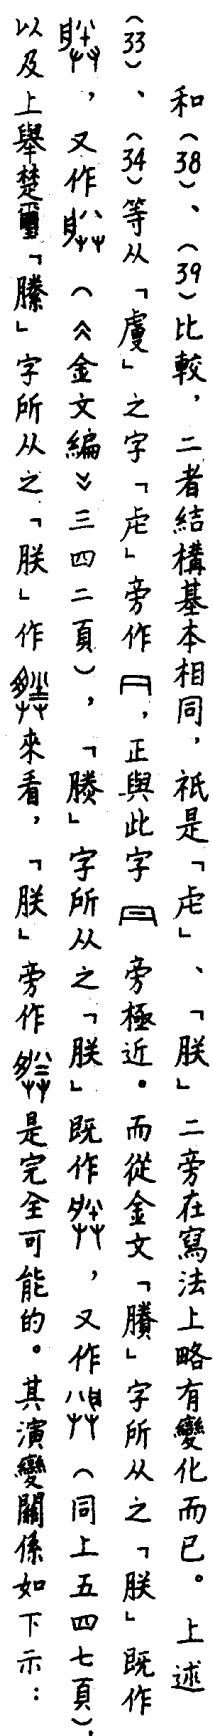 和（38）、（39）比較，二者結構基本相同，祇是「虍」、「朕」二旁在寫法上略有變化而已。上述
（33）、（34）等从「虔」之字「虍」旁作，正與此字旁極近。而從金文「賸」字所从之「朕」既作
，又作（《金文編》三四二頁），「媵」字所从之「朕」既作，又作（同上五四七頁），
以及上舉楚璽「縢」字所从之「朕」作來看，「朕」旁作是完全可能的。其演變關係如下示：